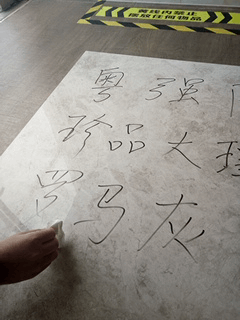 黄线内禁止
摆放任何物品
粤强
珍品大理
罗马灰